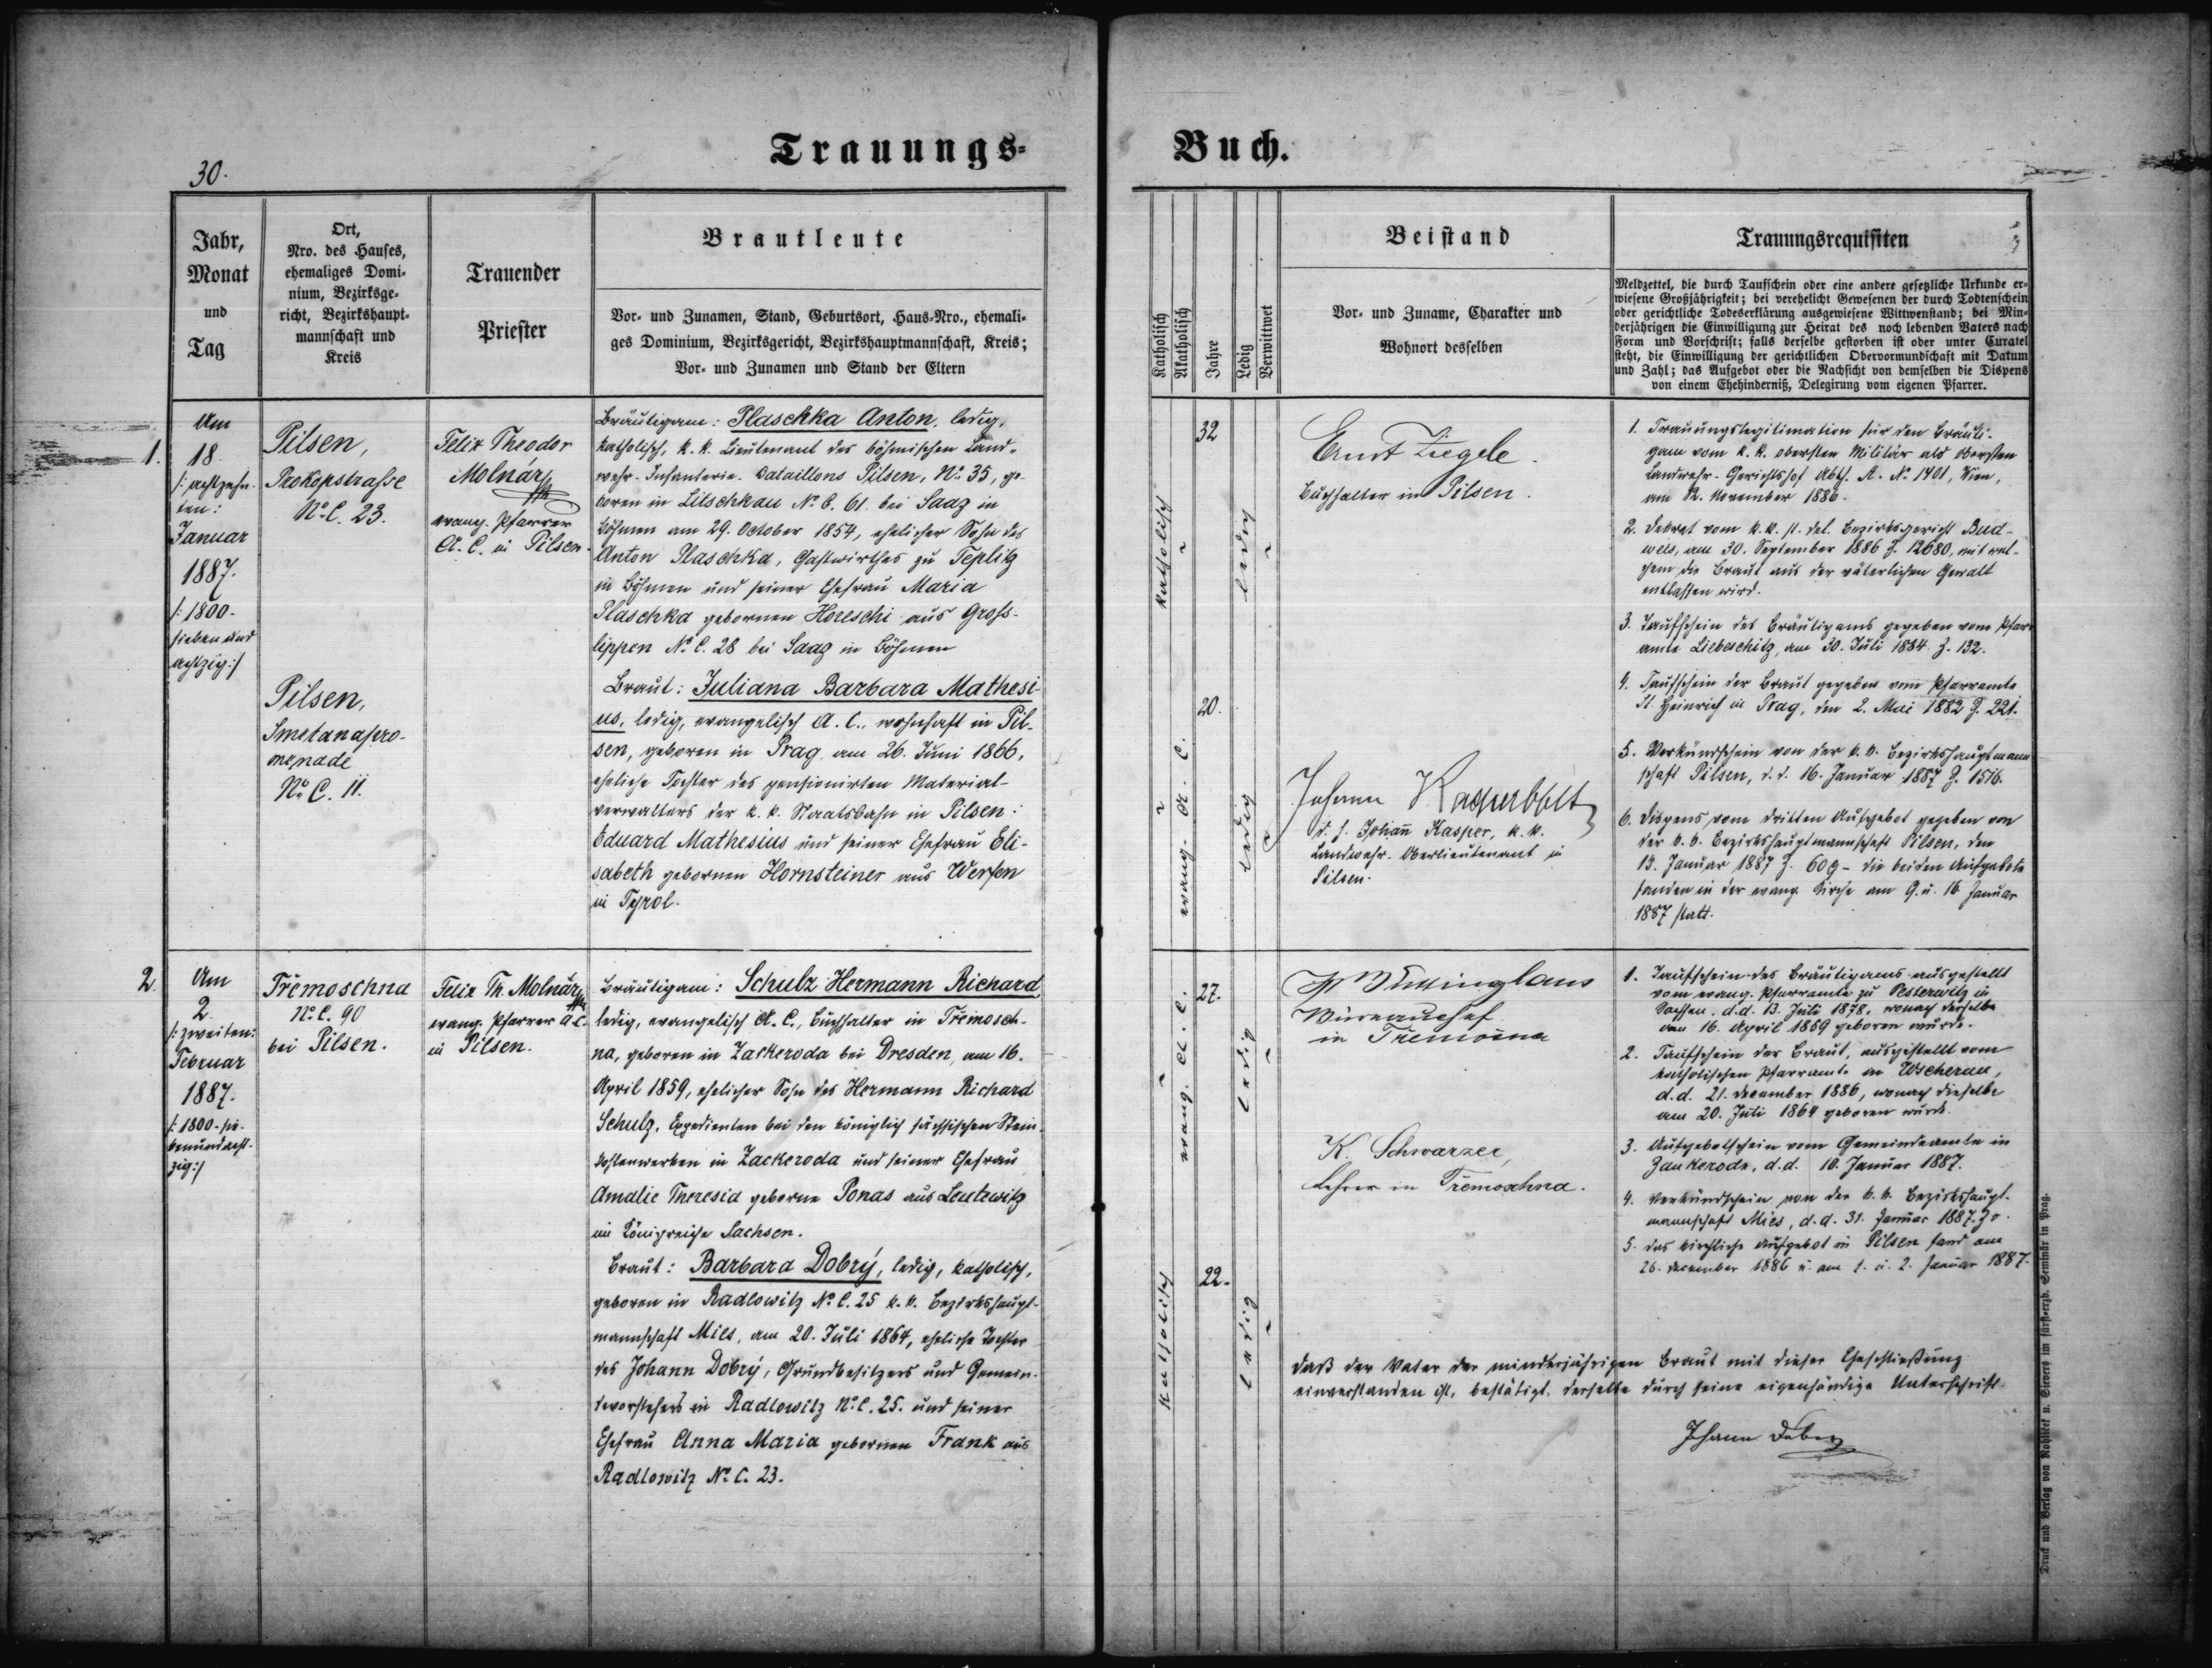 Trauungs-
Buch.
30.
Jahr,
Monat
und
Tag
Ort,
Nro. des Hauses,
ehemaliges Domi-
nium, Bezirksge-
richt, Bezirkshaupt-
mannschaft und
Kreis
Trauender
Priester
Brautleute
Vor- und Zunamen, Stand, Geburtsort, Haus-Nro., ehemali-
ges Dominium, Bezirksgericht, Bezirkshauptmannschaft, Kreis;
Vor- und Zunamen und Stand der Eltern
Katholisch
Akatholisch
Jahre
Ledig
Verwittwet
Beistand
Vor- und Zuname, Charakter und
Wohnort desselben
Trauungsrequisiten
Meldzettel, die durch Taufschein oder eine andere gesetzliche Urkunde er-
wiesene Großjährigkeit; bei verehelicht Gewesenen der durch Todtenschein
oder gerichtliche Todeserklärung ausgewiesene Wittwenstand; bei Min-
derjährigen die Einwilligung zur Heirat des noch lebenden Vaters nach
Form und Vorschrift; falls derselbe gestorben ist oder unter Curatel
steht, die Einwilligung der gerichtlichen Obervormundschaft mit Datum
und Zahl; das Aufgebot oder die Nachsicht von demselben die Dispens
von einem Ehehinderniß, Delegirung vom eigenen Pfarrer.
1.
Am
18
/: achtzehn-
ten:
Januar
1887.
/: 1800-
sieben und
achtzig:/
Pilsen,
Prokopstrasse
No. C. 23.
Pilsen,
Smetanapro-
menade
No C. 11.
Felix Theodor
Molnár
evang. Pfarrer
A. C. in Pilsen.
Bräutigam: Plaschka Anton, ledig,
katholisch, k. k. Lieutenant des böhmischen Land-
wehr-Infanterie-Bataillons Pilsen, No. 35, ge-
boren in Litschkau No. C. 61 bei Saaz in
Böhmen am 29. October 1854, ehelicher Sohn des
Anton Plaschka, Gastwirthes zu Teplitz
in Böhmen und seiner Ehefrau Maria
Plaschka gebornen Horeschi aus Gross-
lippen No. C. 28 bei Saaz in Böhmen
Braut: Juliana Barbara Mathesi-
us, ledig, evangelisch A. C., wohnhaft in Pil-
sen, geboren in Prag am 26. Juni 1866,
eheliche Tochter des pensionirten Material-
verwalters der k. k. Staatsbahn in Pilsen:
Eduard Mathesius und seiner Ehefrau Eli-
sabeth gebornen Hornsteiner aus Werfen
in Tyrol.
katholisch
evang. A. C.
32
20.
ledig
ledig
Ernst Ziegele.
Buchhalter in Pilsen.
Johann
d. h. Johann Kasper, k. k.
Landwehr-Oberlieutenant in
Pilsen.
1. Trauungslegitimation für den Bräuti-
gam vom k. k. obersten Militär als obersten
Landwehr-Gerichtshof Abth. A. No. 1401, Wien,
am 12. November 1886.
2. Dekret vom k. k. st. del. Bezirksgericht Bud-
weis, am 30. September 1886 Z. 12680, mit wel-
chem die Braut aus der väterlichen Gewalt
entlassen wird.
3. Taufschein des Bräutigams gegeben vom Pfarr-
amte Liebeschitz, am 30. Juli 1884 Z. 132.
4. Taufschein der Braut gegeben vom Pfarramte
St. Heinrich in Prag, den 2. Mai 1882 Z. 221.
5. Verkündschein von der k. k. Bezirkshauptmann-
schaft Pilsen, d. d. 16. Januar 1887 Z. 1576.
6. Dispens vom dritten Aufgebot gegeben von
der k. k. Bezirkshauptmannschaft Pilsen, den
13. Januar 1887 Z. 609 - die beiden Aufgebote
fanden in der evang. Kirche am 9. u. 16. Januar
1887 statt.
2.
Am
2.
/: zweiten:
Februar
1887.
/: 1800-sie-
benundacht-
zig:/
Třemoschna
No. C. 90
bei Pilsen.
Felix Th. Molnár
evang. Pfarrer A. C.
in Pilsen.
Bräutigam: Schulz Hermann Richard
ledig, evangelisch A. C., Buchhalter in Třemosch-
na, geboren in Zackeroda bei Dresden, am 16.
April 1859, ehelicher Sohn des Hermann Richard
Schulz, Expedienten bei den königlich sächsischen Stein-
kohlenwerken in Zackeroda und seiner Ehefrau
Amalie Theresia geborne Ponas aus Leutewitz
im Königreiche Sachsen.
Braut: Barbara Dobrý, ledig, katholisch,
geboren in Radlowitz No. C. 25 k. k. Bezirkshaupt-
mannschaft Mies, am 20. Juli 1864, eheliche Tochter
des Johann Dobrý, Grundbesitzers und Gemein-
devorstehers in Radlowitz No. C. 25. und seiner
Ehefrau Anna Maria gebornen Frank aus
Radlowitz No. C. 23.
evang. A. C.
katholisch
27.
22.
ledig
ledig
in Třemošna
K. Schwarzer,
Lehrer in Třemoschna.
1. Taufschein des Bräutigams ausgestellt
vom evang. Pfarramte zu Pesterwitz in
Sachsen, d. d. 13. Juli 1878, wonach derselbe
den 16. April 1859 geboren wurde.
2. Taufschein der Braut, ausgestellt vom
katholischen Pfarramte in Wscherau,
d. d. 21. December 1886, wonach dieselbe
am 20. Juli 1864 geboren wurde.
3. Aufgebotschein vom Gemeindeamte in
Zaukeroda, d. d. 10. Januar 1887.
4. Verkündschein von der k. k. Bezirkshaupt-
mannschaft Mies, d. d. 31. Januar 1887.
5. Das kirchliche Aufgebot in Pilsen fand am
26. December 1886 u. am 1. u. 2. Januar 1887.
Daß der Vater der minderjährigen Braut mit dieser Eheschließung
einverstanden ist, bestätigt derselbe durch seine eigenhändige Unterschrift.
Johann
Druck und Verlag von Rohliček u. Sievers im fürst-erzb. Seminär in Prag.